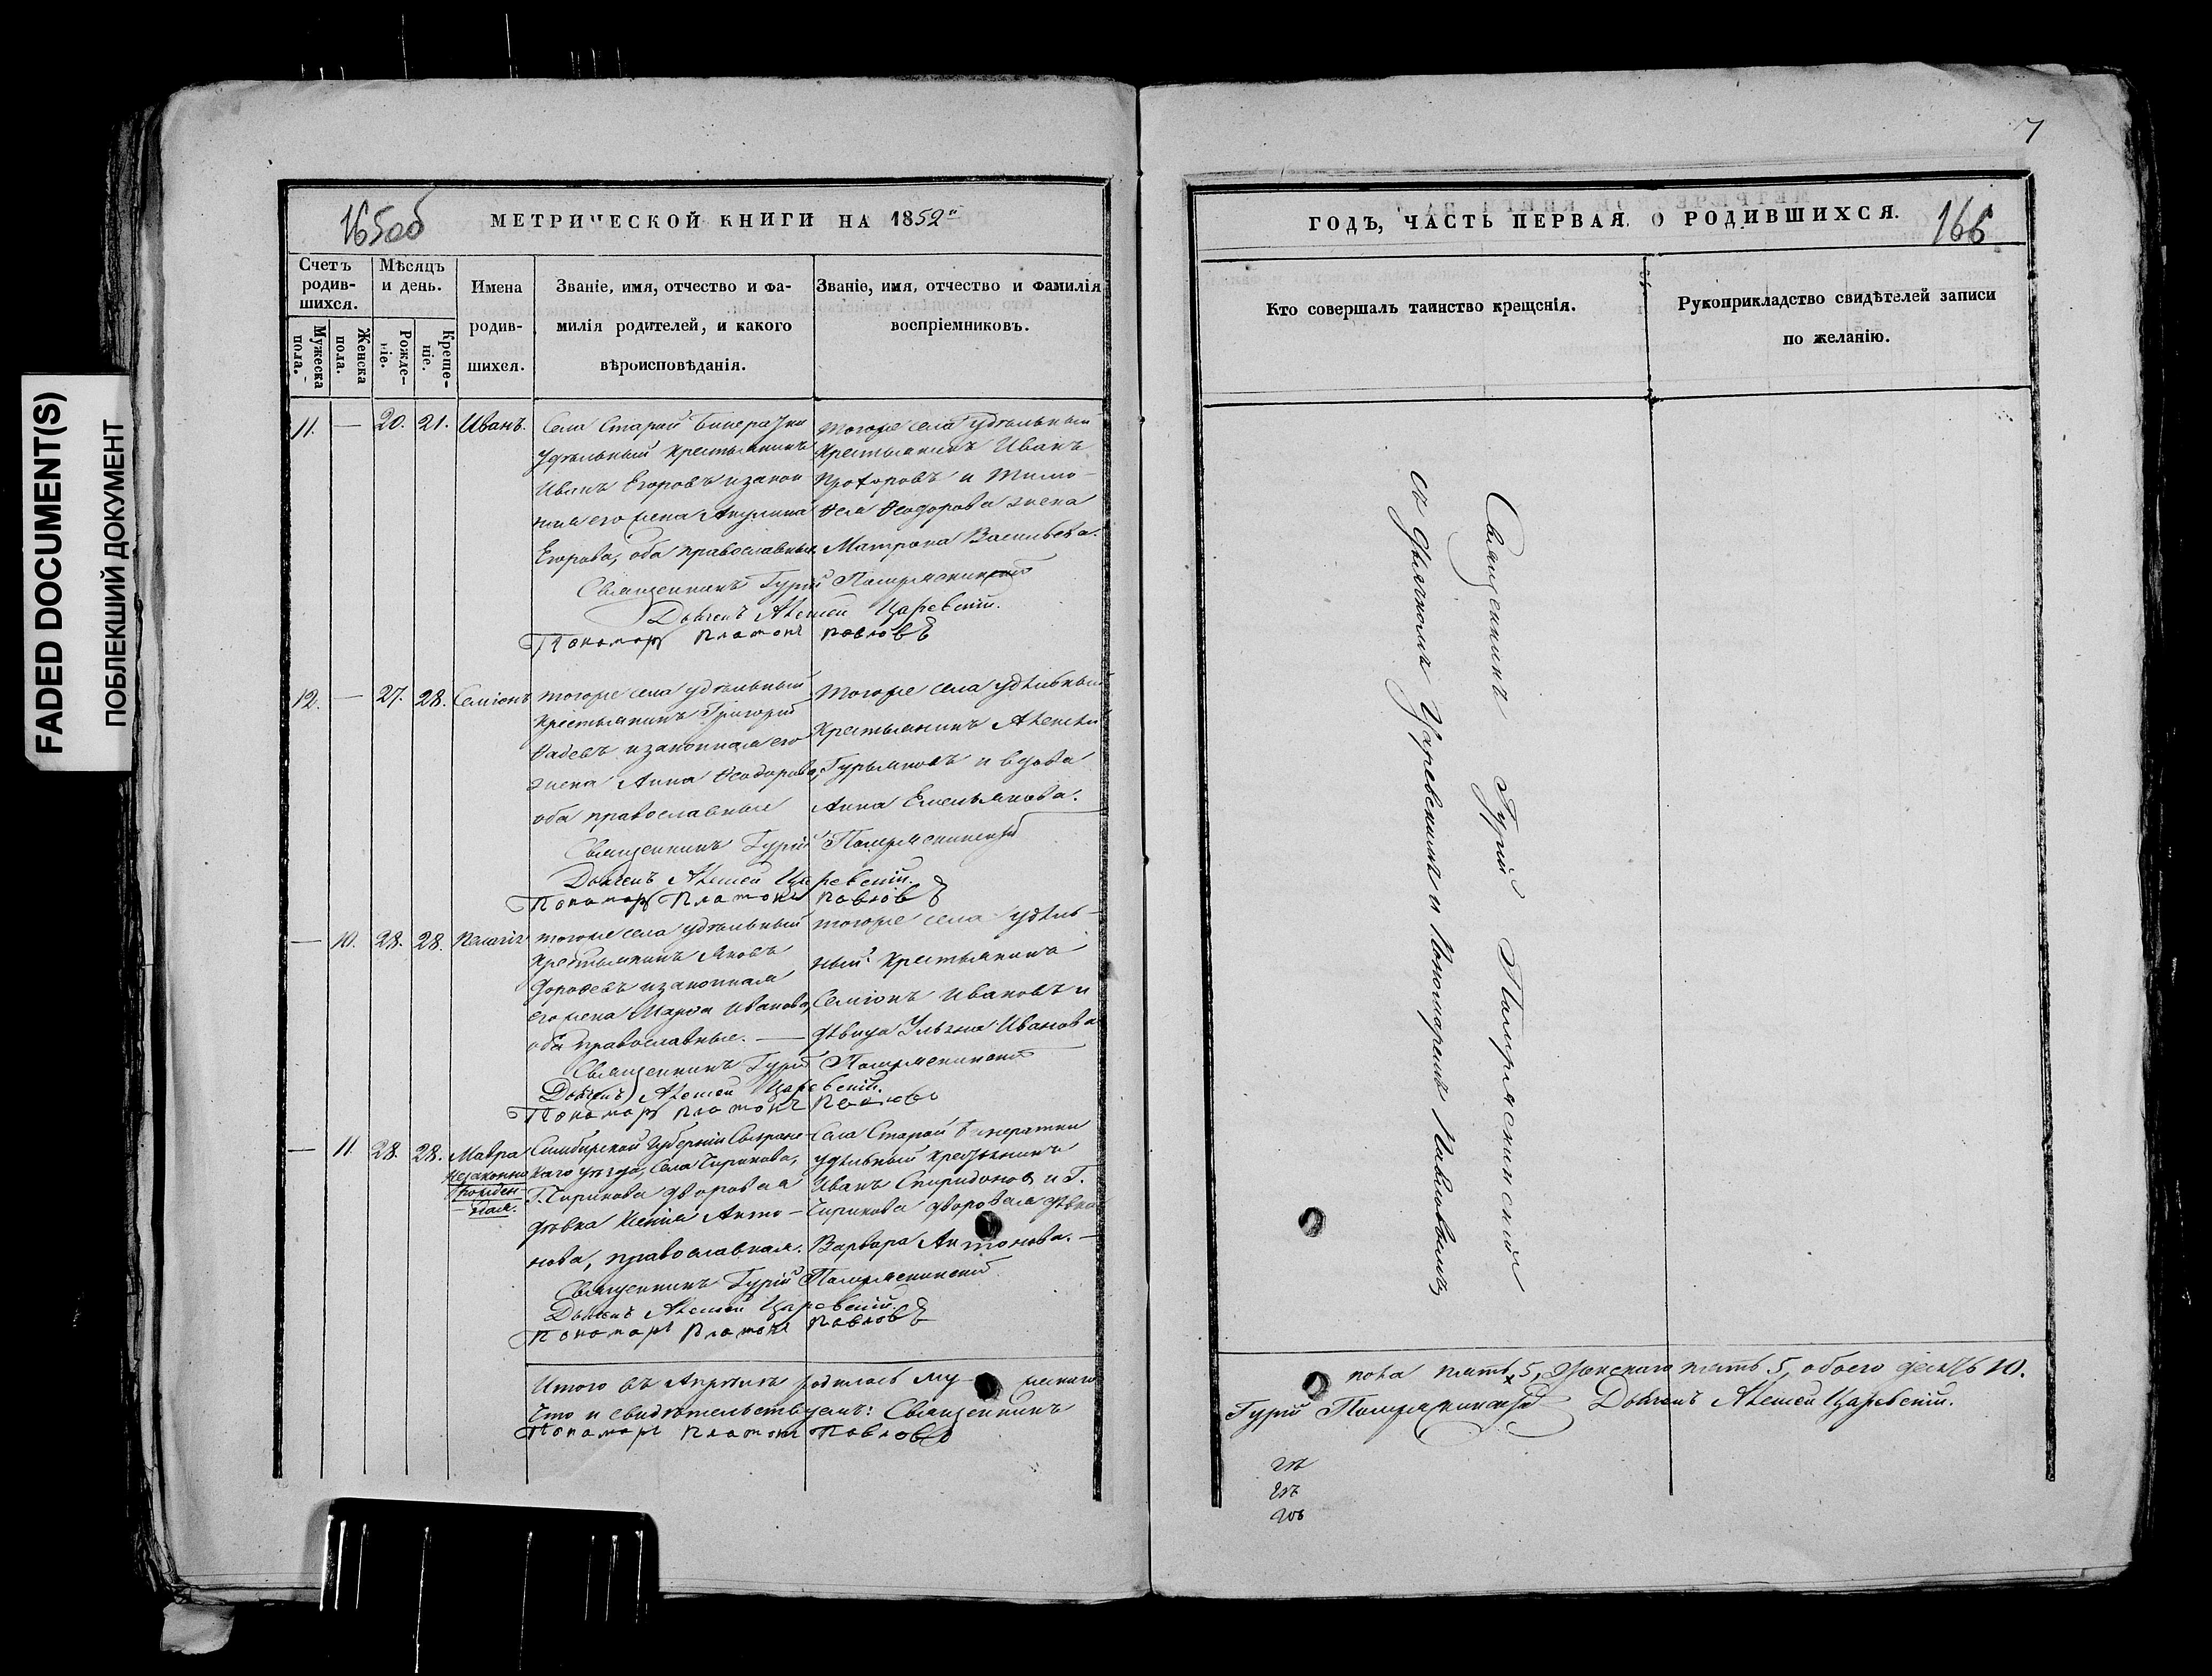 FADED DOCUMENT(S)
ПОБЛЕКШИЙ ДОКУМЕНТ
165об
МЕТРИЧЕСКОЙ КНИГИ НА 1852
Счетъ родив-шихся.
Мужеска пола.
Женска пола.
Мѣсяцъ и день.
Рожде-ніе.
Креще-ніе.
Имена
родив-
шихся.
Званіе, имя, отчество и фа-
милія родителей, и какого
вѣроисповѣданія.
Званіе, имя, отчество и фамилія
воспріемниковъ.
11. — 20. 21. Иванъ.
Села Старой
удѣльный крестьянинъ
Иванъ Егоровъ и закон
ная его жена Акулина
Егорова, оба православные
тогоже села удѣльный
крестьянинъ Иванъ
Прохоровъ и Тимо-
фея Ѳеодорова жена
Матрона Васильева.
Священникъ Гурій
Дьячекъ Алексей Царевскій.
Пономарь Платонъ Павловъ
12. — 27. 28. Семіонъ
тогоже села удѣльный
крестьянинъ Григорій
и законная его
жена Анна Ѳеодорова,
оба православные
тогоже села удѣльный
крестьянинъ Алексей
Гурьяновъ и вдова
Анна Емельянова.
Священникъ Гурій
Дьячекъ Алексей Царевскій.
Пономарь Платонъ Павловъ
— 10. 28. 28. Пелагія
тогоже села удѣльный
крестьянинъ Яковъ
Дороѳеевъ и законная
его жена Марѳа Иванова,
оба православные. —
тогоже села удѣль-
ный крестьянинъ
Семіонъ Ивановъ и
дѣвица Ульяна Иванова
Священникъ Гурій
Дьячекъ Алексей Царевскій.
Пономарь Платонъ Павловъ
— 11. 28. 28. Мавра
незаконно
рожден-
ная.
Симбирской губерніи Сызранс-
каго уѣзда, села
дворовая
дѣвка Ксенія Анто-
нова, православная.
Села Старой
удѣльный крестьянинъ
Иванъ Спиридоновъ и Г.
дворовая дѣвка
Варвара Антонова. —
Священникъ Гурій
Дьячекъ Алексей Царевскій.
Пономарь Платонъ Павловъ
Итого въ Апрѣлѣ родилось му- жескаго
Что и свидѣтельствуемъ: Священникъ
Пономарь Платонъ Павловъ
7
ГОДЪ, ЧАСТЬ ПЕРВАЯ, О РОДИВШИХСЯ.
166
Кто совершалъ таинство крещенія.
Рукоприкладство свидѣтелей записи
по желанію.
Священникъ Гурій
съ Дьячкомъ Царевскимъ и Пономаремъ Павловымъ
пола пять 5, Женскаго пять 5, обоего десять 10.
Гурій
Дьячекъ Алексей Царевскій.